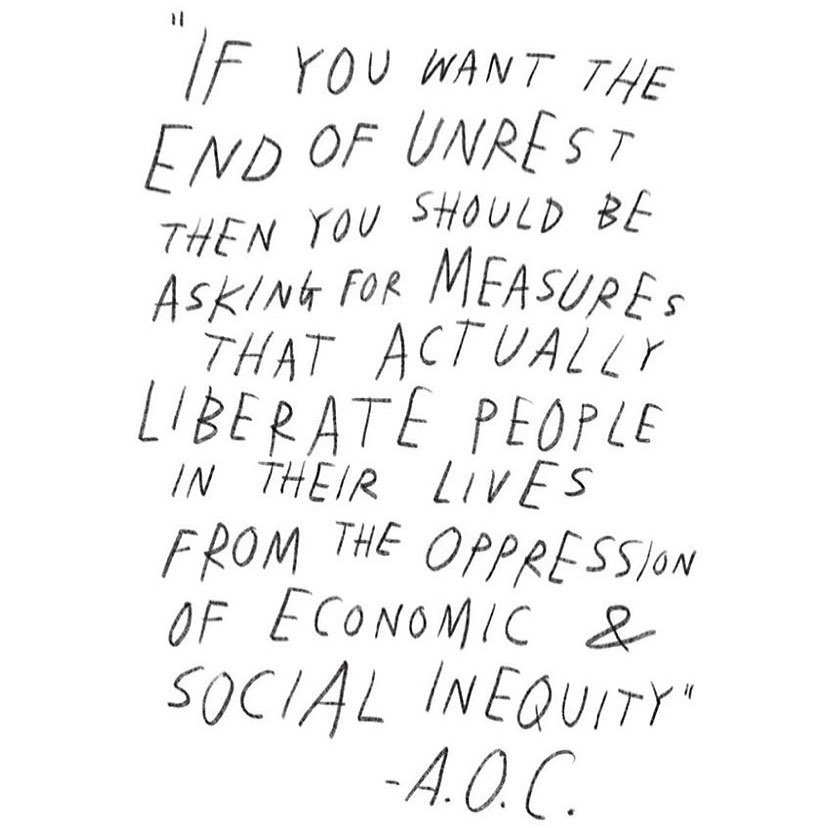 "IF YOU WANT THE
END OF UNREST
THEN YOU SHOULD BE
ASKING FOR MEASURES
THAT ACTUALLY
LIBERATE PEOPLE
IN THEIR LIVES
FROM THE OPPRESSION
OF ECONOMIC &
SOCIAL INEQUITY"
-A.O.C.